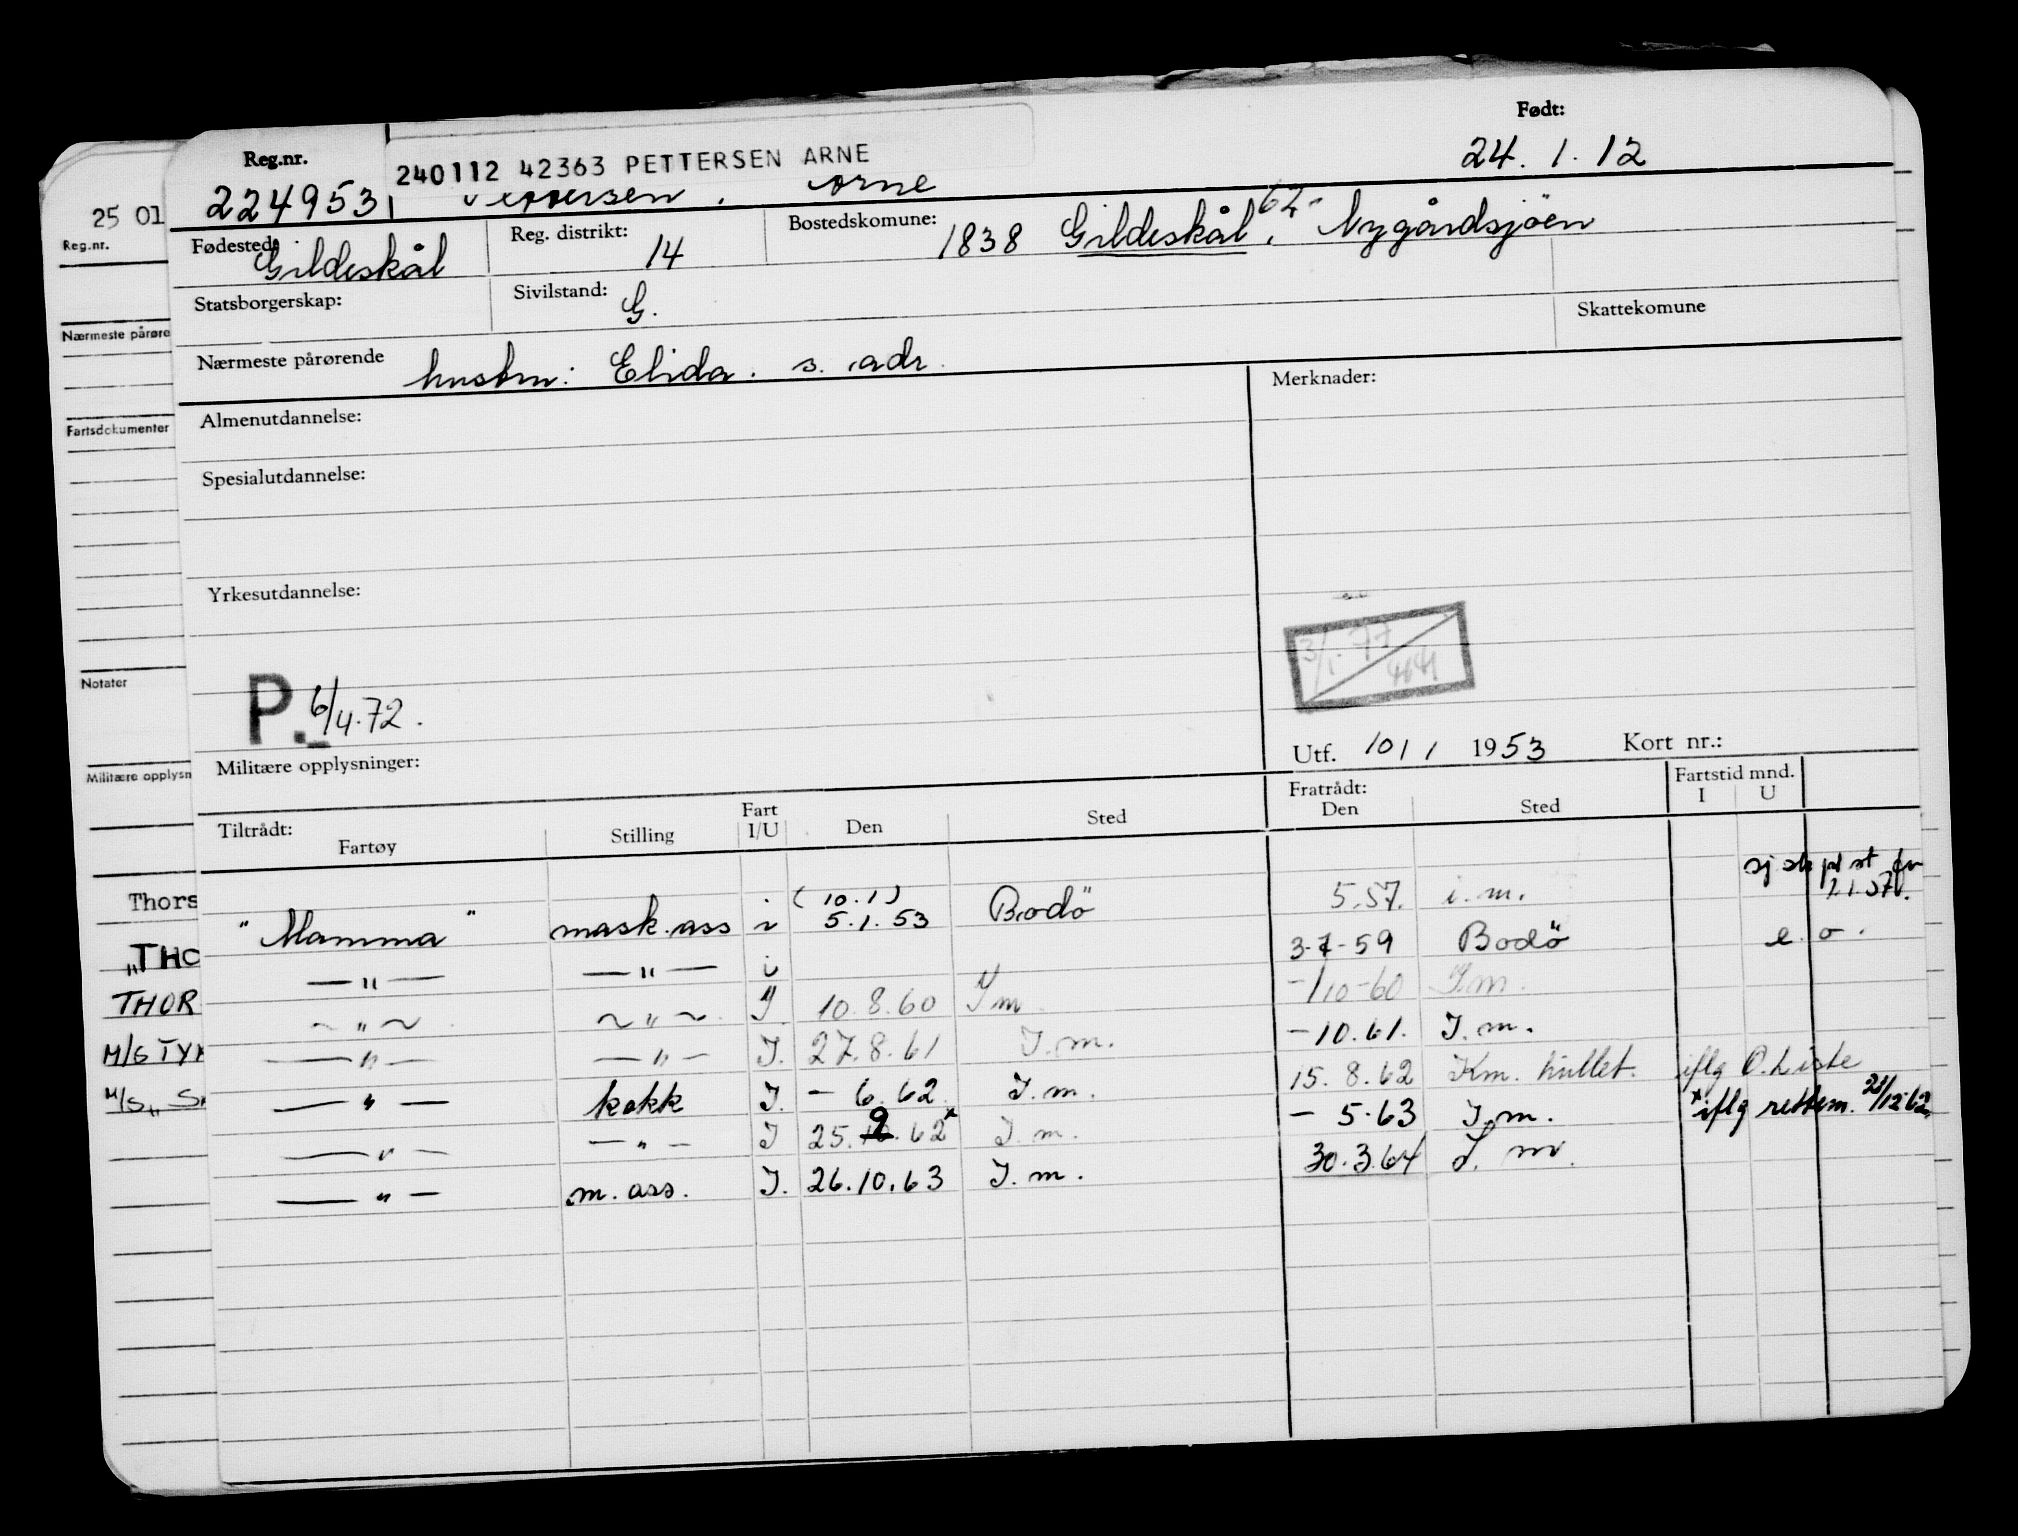 Reg.nr.
Født:
240112 42363 PETTERSEN ARNE
224953
Arne
24.1.12
Fødested:
Gildeskål
Reg. distrikt:
14
Bostedskomune:
1838 Gildeskål, 62- Nygårdsjöen
Statsborgerskap:
Sivilstand:
G.
Skattekomune
Nærmeste pårørende
hustru: Elida. s. adr.
Merknader:
Almenutdannelse:
Spesialutdannelse:
Yrkesutdannelse:
3/1.77
P. 6/4.72.
Utf. 10/1 1953 Kort nr.:
Militære opplysninger:
Tiltrådt:
Fartøy
Stilling
Fart
I/U
Den
Sted
Fratrådt:
Den
Sted
Fartstid mnd.
I U
"Mamma" mask.ass i (10.1) 5.1.53 Bodö 5.57. i.m.
2.1.57.
— " — — " — i 3-7-59 Bodö e.o.
~ " ~ ~ " ~ I 10.8.60 I m -/10-60 I.m.
— " — — " — I. 27.8.61 I.m. -10.61. I.m.
— " — kokk I. - 6.62. I.m. 15.8.62 Km. hullet. iflg O.Liste
— " — — " — I 25.9.62 x I.m. - 5.63 I.m. x iflg rettem. 21/12.62
— " — m.ass. I. 26.10.63 I.m. 30.3.64 I.m.
25 01
Reg.nr.
Nærmeste pårøre
Fartsdokumenter
Notater
Militære opplysn
Thors
"THO
THOR
M/S TYR
M/S